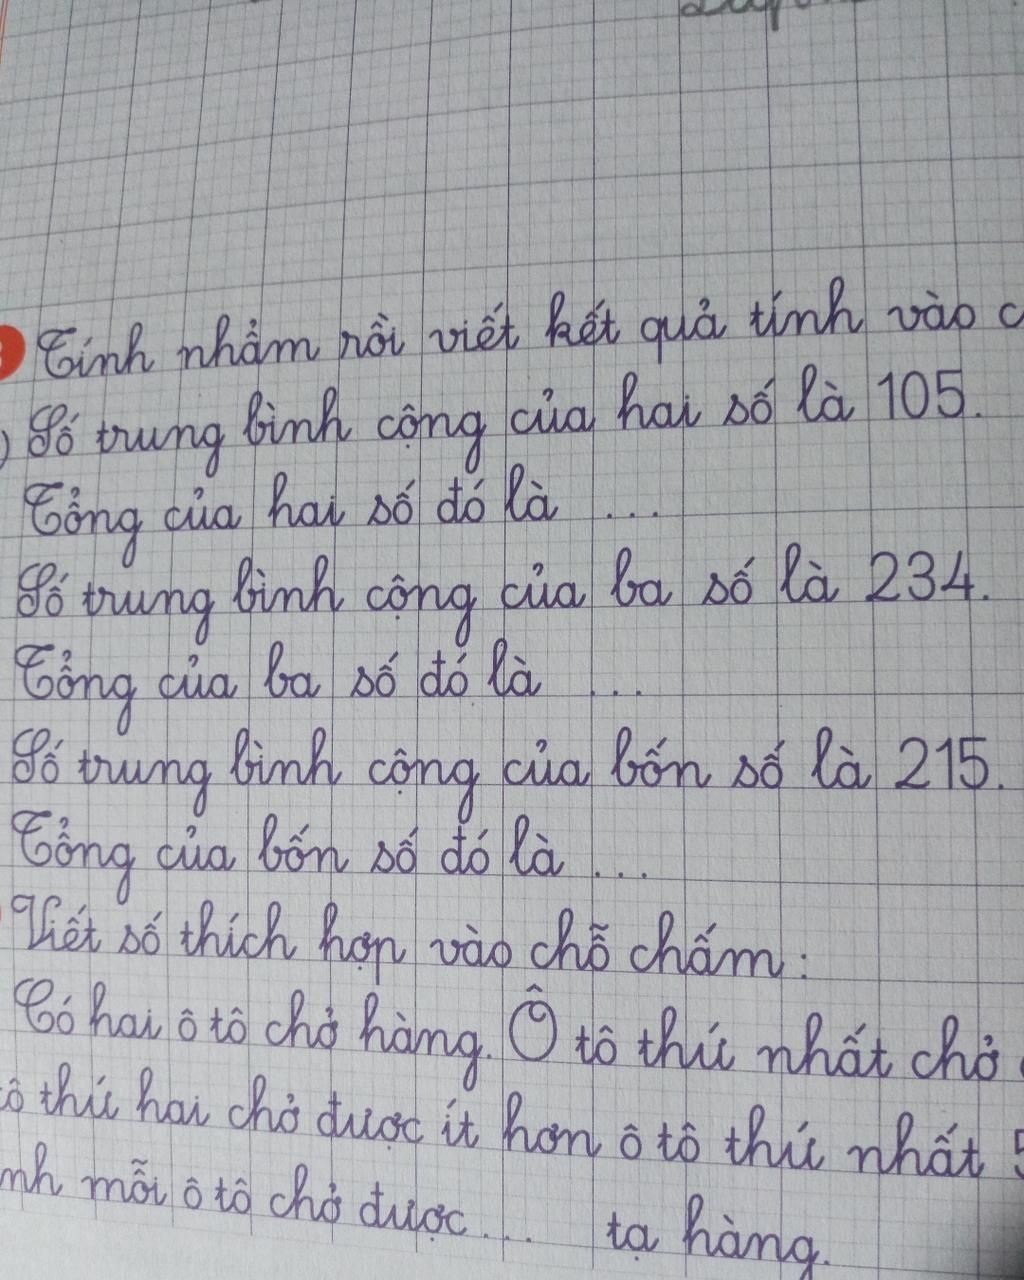 Tính nhẩm rồi viết kết quả tính vào
Số trung bình cộng của hai số là 105.
Tổng của hai số đó là ...
Số trung bình cộng của ba số là 234.
Tổng của ba số đó là ...
Số trung bình cộng của bốn số là 215.
Tổng của bốn số đó là ...
Viết số thích hợp vào chỗ chấm:
Có hai ô tô chở hàng. Ô tô thứ nhất chở
thứ hai chở được ít hơn ô tô thứ nhất
mỗi ô tô chở được ... tạ hàng.